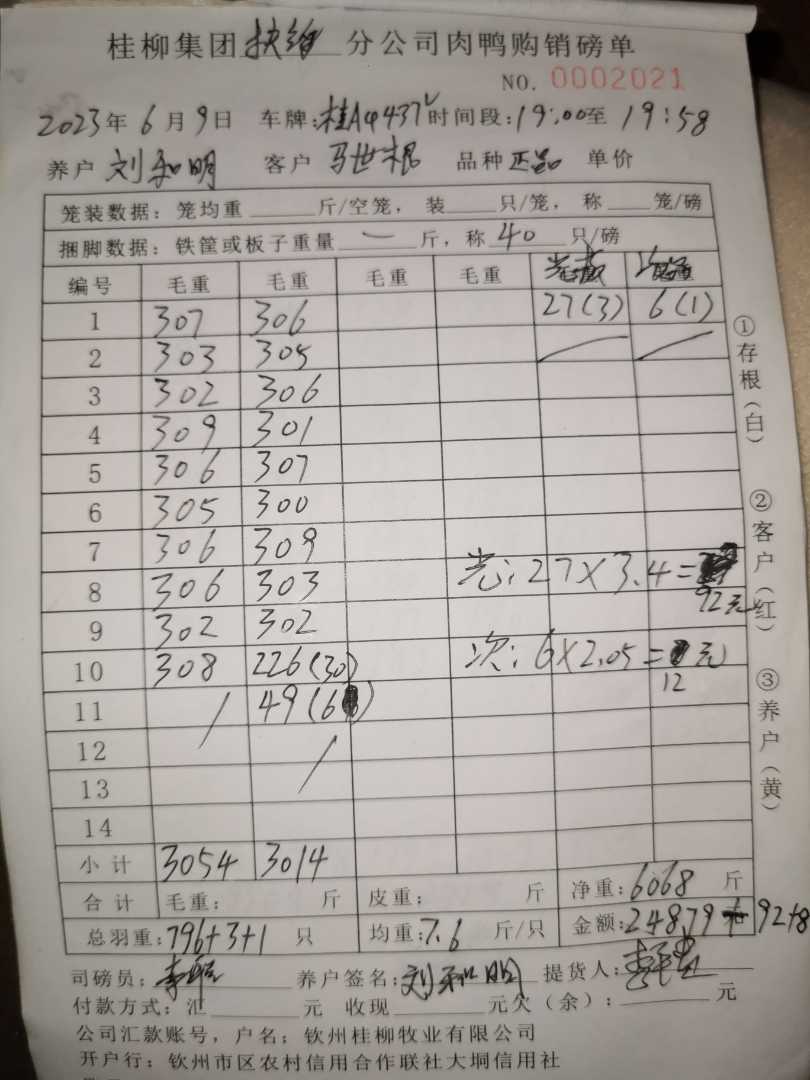 桂柳集团扶绥分公司肉鸭购销磅单
NO. 0002021
2023年6月9日 车牌:桂A9437 时间段:19:00至19:58
养户 刘和明 客户 马世根 品种 正品 单价
笼装数据:笼均重 斤/空笼,装 只/笼,称 笼/磅
捆脚数据:铁筐或板子重量 一 斤,称40只/磅
编号 毛重 毛重 毛重 毛重
1 307 306 27(3) 6(1)
2 303 305
3 302 306
4 309 301
5 306 307
6 305 300
7 306 309
8 306 303 光:27×3.4=
9 302 302 92元
10 308 226(30) 次:6×2.05= 元
11 / 49(6) 12
12 /
13
14
小计 3054 3014
合计 毛重: 斤 皮重: 斤 净重:6068斤
总羽重:796+3+1只 均重:7.6斤/只 金额:24879+92+8
司磅员: 养户签名:刘和明 提货人:
付款方式:汇 元 收现 元欠(余): 元
公司汇款账号,户名:钦州桂柳牧业有限公司
开户行:钦州市区农村信用合作联社大垌信用社
①存根(白)
②客户(红)
③养户(黄)